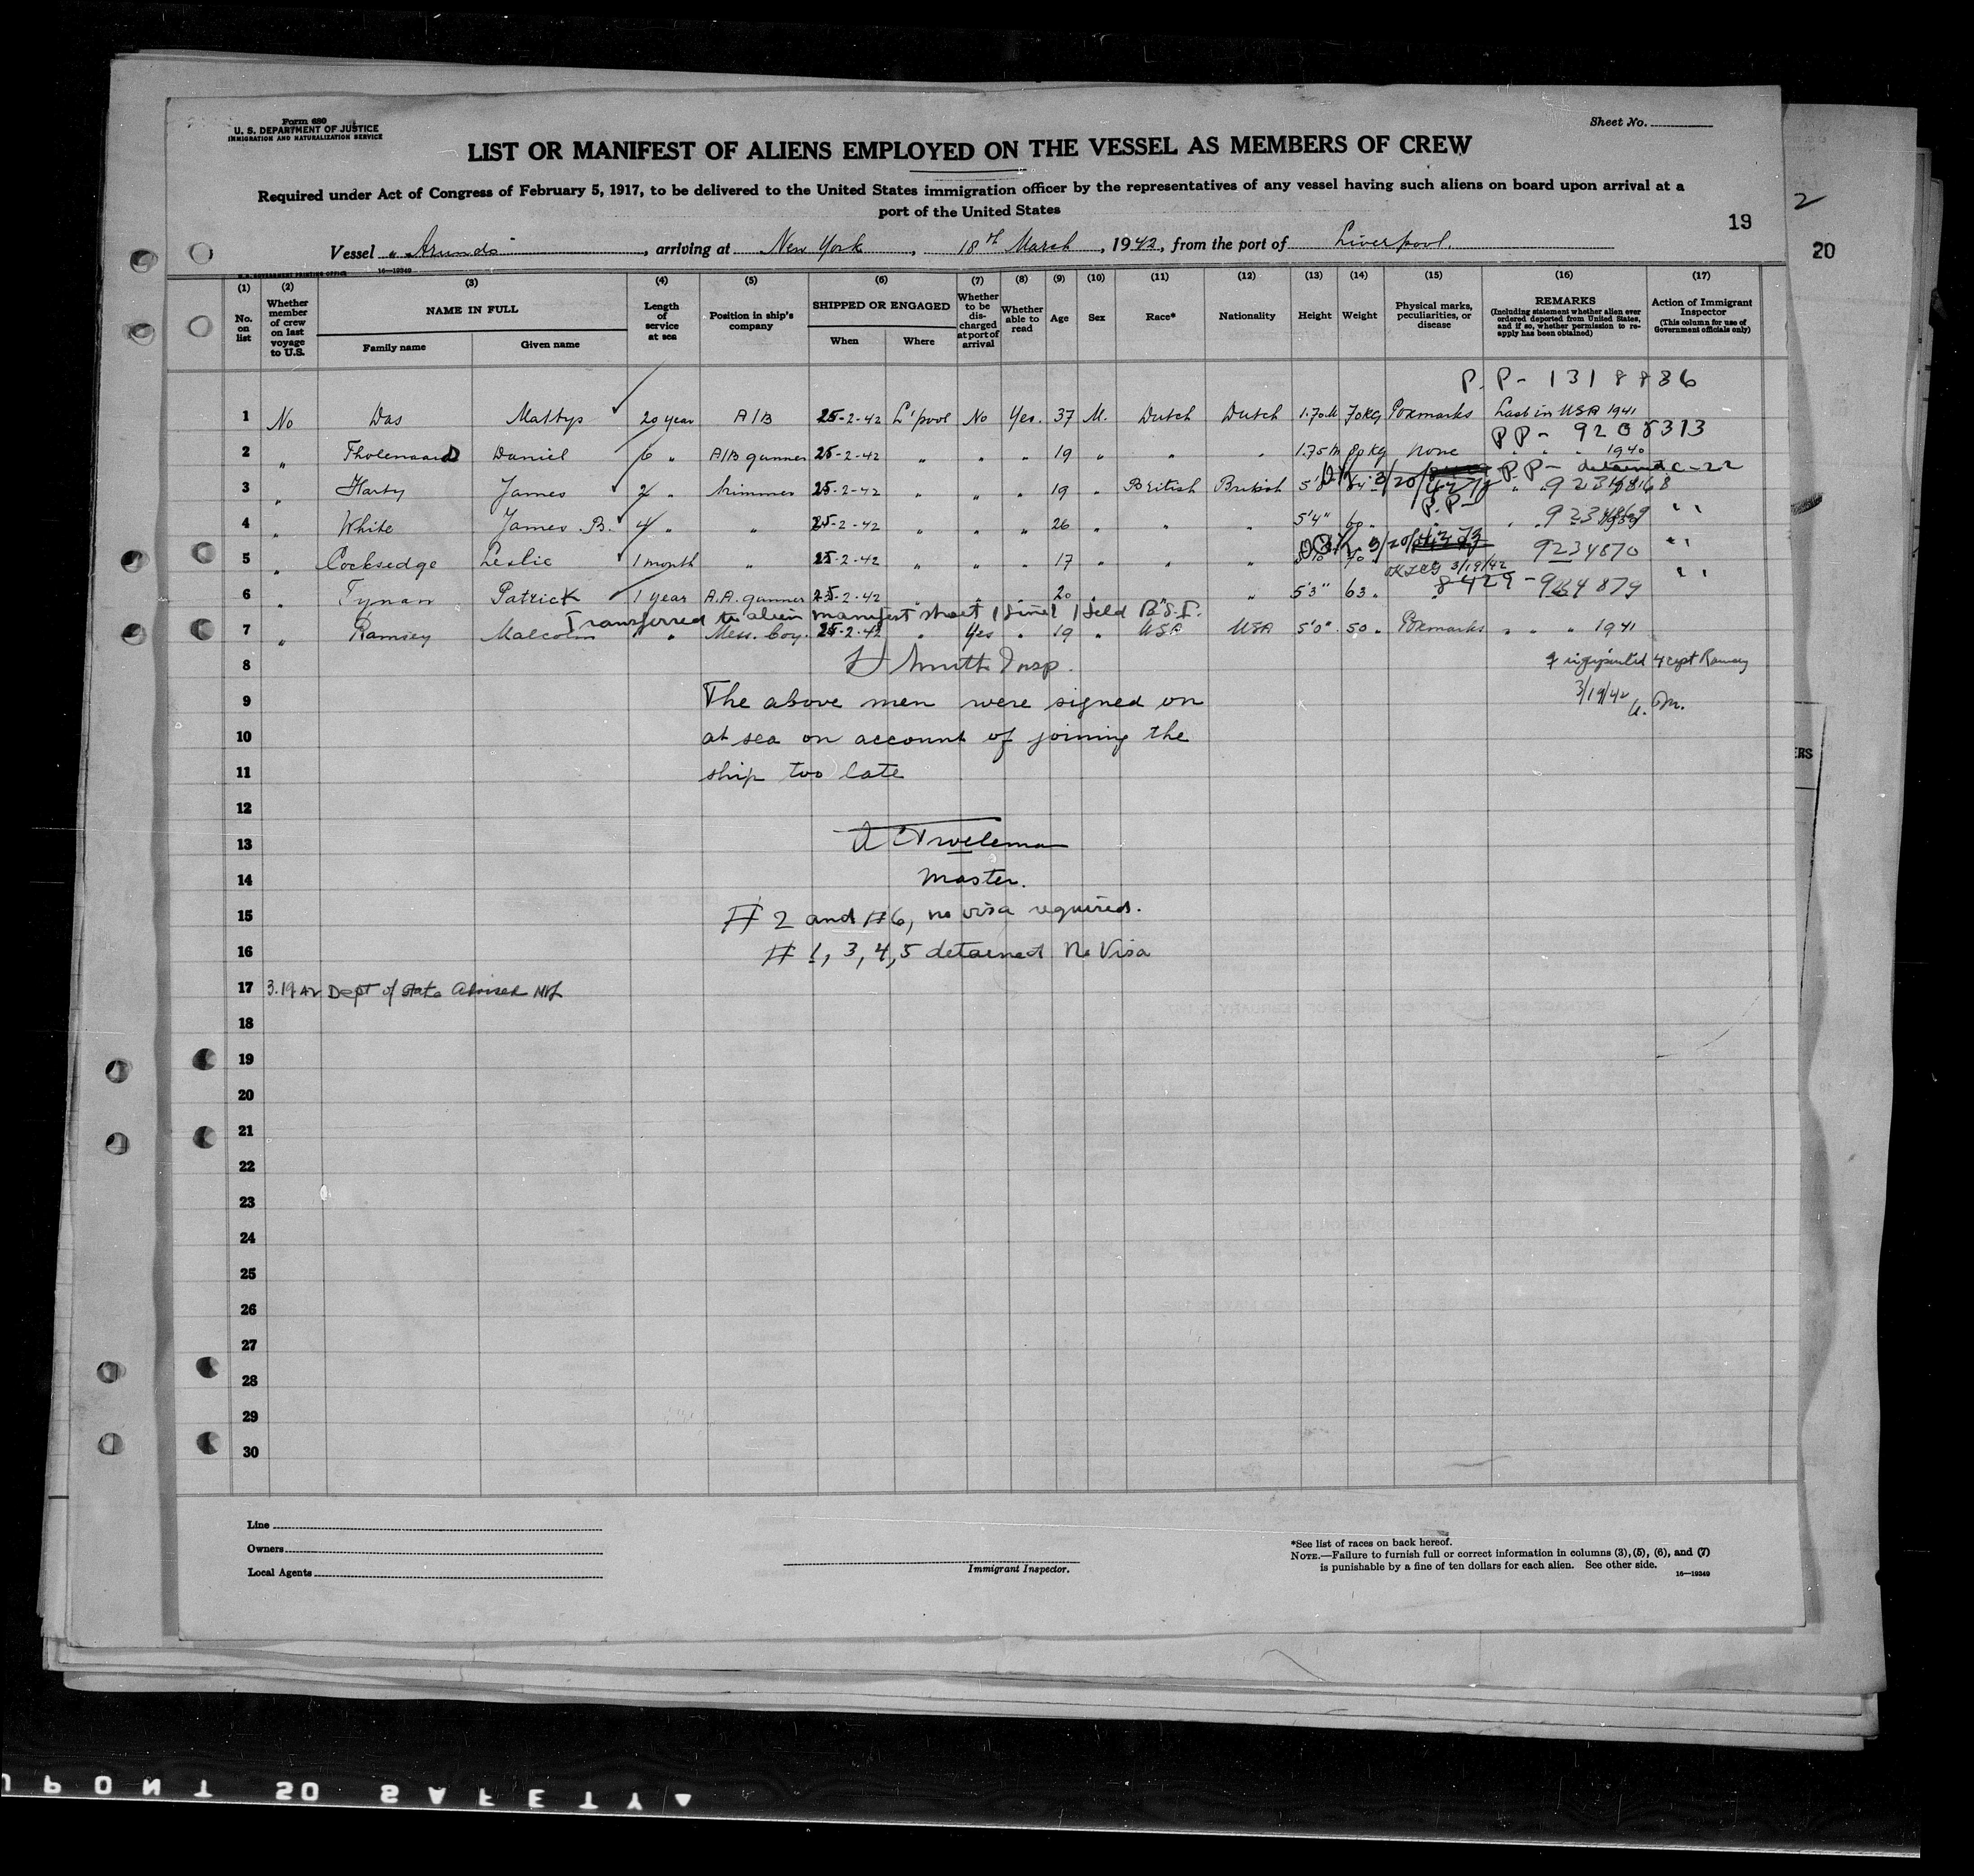 Form 680
U. S. DEPARTMENT OF JUSTICE
IMMIGRATION AND NATURALIZATION SERVICE
Sheet No.
LIST OR MANIFEST OF ALIENS EMPLOYED ON THE VESSEL AS MEMBERS OF CREW
Required under Act of Congress of February 5, 1917, to be delivered to the United States immigration officer by the representatives of any vessel having such aliens on board upon arrival at a
port of the United States
19
2
20
Vessel „ Arundo , arriving at New York , 18th March , 1942, from the port of Liverpool.
U. S. GOVERNMENT PRINTING OFFICE 16—19349
(1) No. on list
(2) Whether member of crew on last voyage to U.S.
(3) NAME IN FULL Family name Given name
(4) Length of service at sea
(5) Position in ship's company
(6) SHIPPED OR ENGAGED When Where
(7) Whether to be discharged at port of arrival
(8) Whether able to read
(9) Age
(10) Sex
(11) Race*
(12) Nationality
(13) Height
(14) Weight
(15) Physical marks, peculiarities, or disease
(16) REMARKS (Including statement whether alien ever ordered deported from United States, and if so, whether permission to reapply has been obtained)
(17) Action of Immigrant Inspector (This column for use of Government officials only)
P.P- 1318886
1 No Das Mattys 20 year A/B 25-2-42 L'pool No Yes. 37 M. Dutch Dutch 1.70M 70KG Poxmarks Last in USA 1941
PP- 9208313
2 „ Tholenaard Daniel 6 „ A/B gunner 25-2-42 „ „ „ 19 „ „ „ 1.75M 80 Kg none „ „ „ 1940
3/20/42 P.P- detained C-22
3 „ Harty James 2 „ trimmer 25-2-42 „ „ „ 19 „ British British
P.P-
4 „ White James .B. 4 „ „ 25-2-42 „ „ „ 26 „ „ „ 5'4" 60 „ „ "
5 „ Cocksedge Leslie 1 month „ 25-2-42 „ „ „ 17 „ „ „ 9234870 "
OK 3/19/42
6 „ Tynan Patrick 1 year A.A. gunner 25-2-42 „ „ „ 20 „ „ „ 5'3" 63 „ 8429 - "
Transferred to alien manifest sheet 1 line 1 held B.S.I.
7 „ Ramsey Malcolm „ Mess. boy. 25-2-42 „ Yes „ 19 „ USA USA 5'0" 50 „ Poxmarks „ „ „ 1941
8 Smith Insp.
Ramsey
9 The above men were signed on
3/19/42
10 at sea on account of joining the
11 ship too late
12
13
14 Master.
15 # 2 and #6, no visa required.
16 # 1, 3, 4, 5 detained No Visa
17 3.19.42 Dept of State Advised
18
19
20
21
22
23
24
25
26
27
28
29
30
Line
Owners
Local Agents
Immigrant Inspector.
*See list of races on back hereof.
NOTE.—Failure to furnish full or correct information in columns (3), (5), (6), and (7)
is punishable by a fine of ten dollars for each alien. See other side.
16—19349
ERS
UPONT SO SAFETY